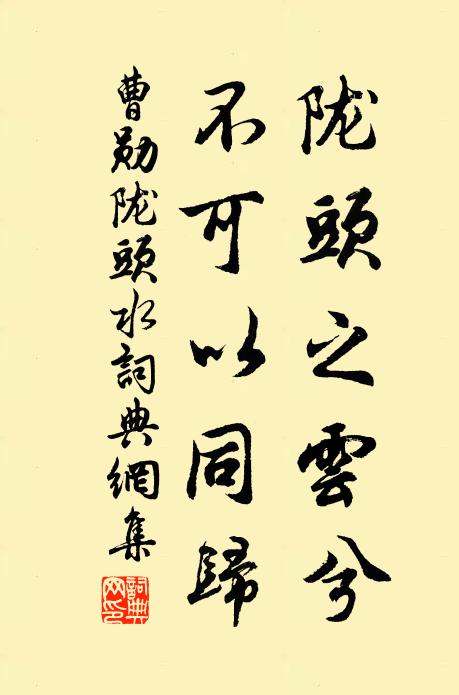 陇頭之雲兮
不可以同歸
曹勛陇頭水詞典網集
詞典网印